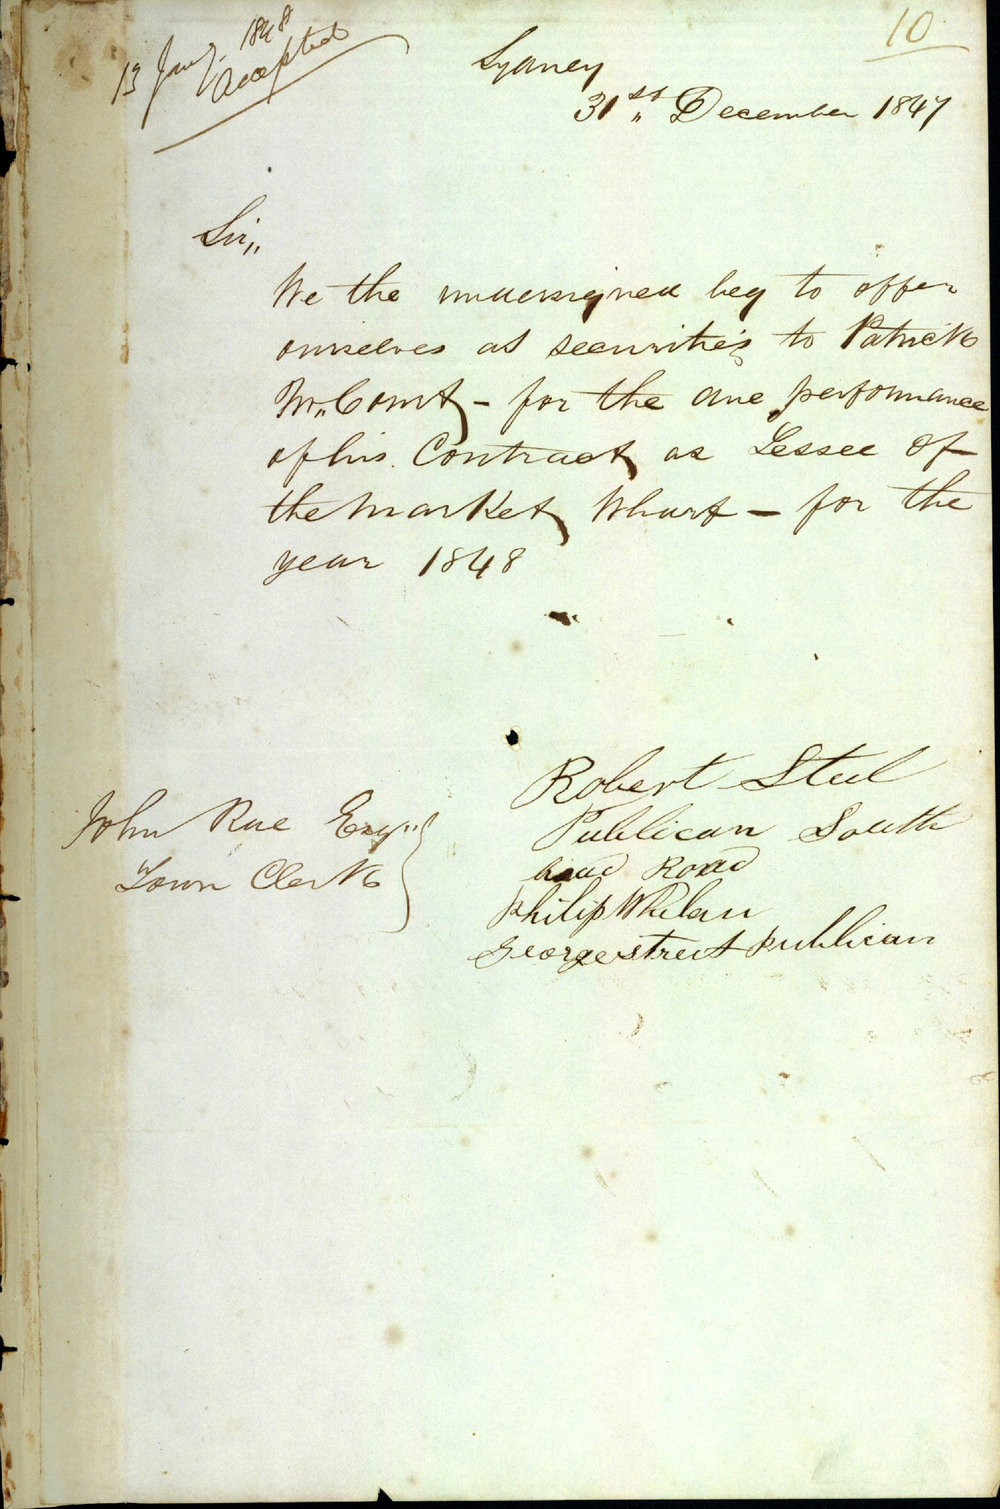 13 Jany. 1848
Accepted
10
Sydney
31st December 1847
Sir,,
We the undersigned beg to offer
ourselves as securities to Patrick
for the due performance
of his Contract as Lessee of
the Market Wharf – for the
year 1848
Robert Steel
Publican South
head Road
Philip Whelan
George street publican
John Rae Esqr
Town Clerk